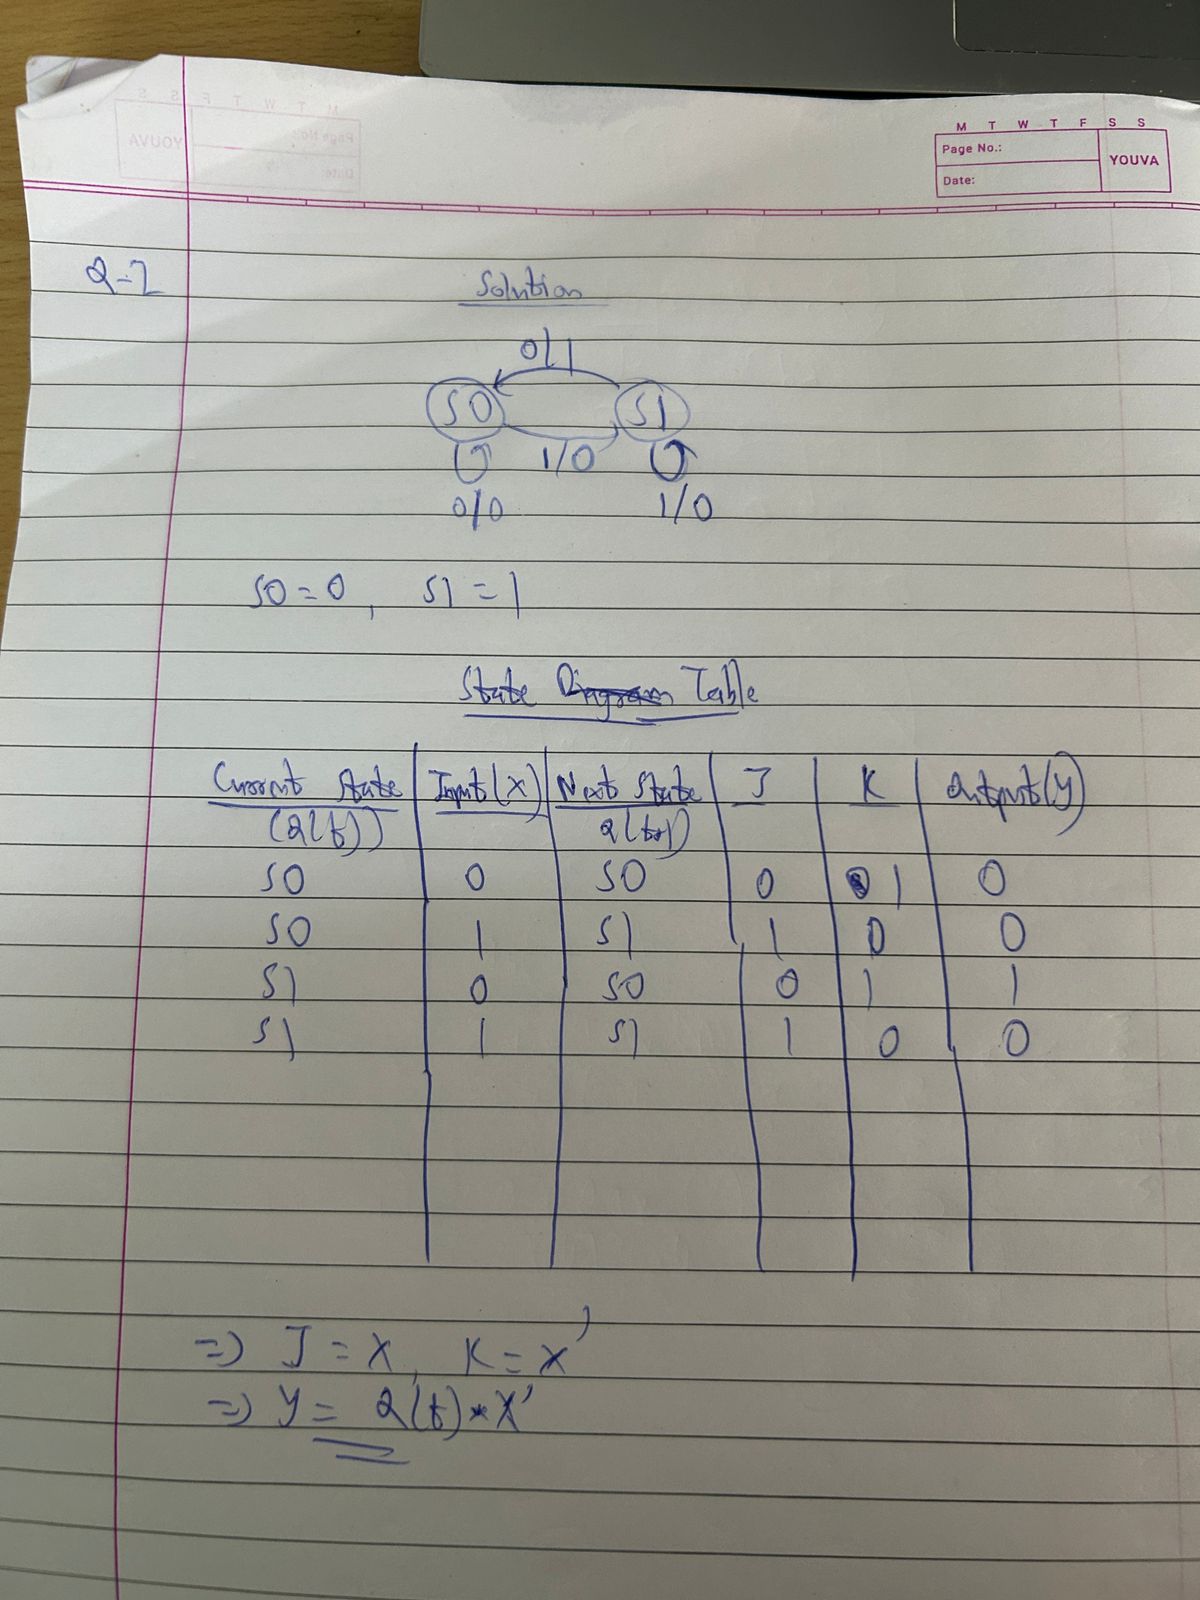 M T W T F S S
Page No.:
YOUVA
Date:
Q-2
Solution
0/1
S0 S1
1/0
0/0 1/0
S0 = 0, S1 = 1
State Diagram Table
Current State Input (X) Next State J K Output (y)
(Q(t)) Q(t+1)
S0 0 S0 0 1 0
S0 1 S1 1 0 0
S1 0 S0 0 1 1
S1 1 S1 1 0 0
=> J = X, K = X'
=> Y = Q(t) * X'